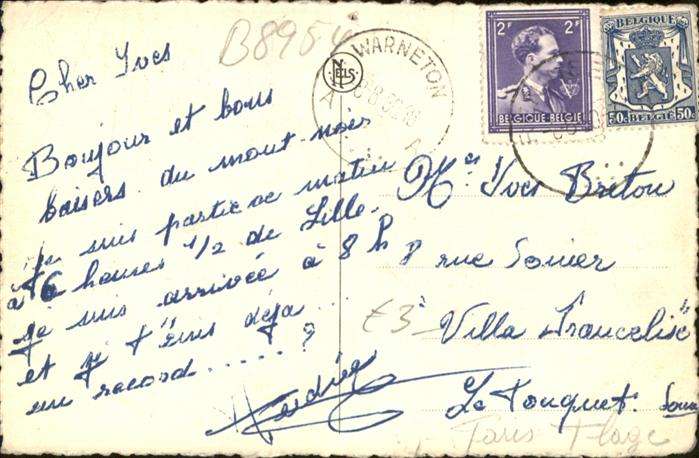 B895
Cher Yves
Bonjour et bons
baisers du mont noir
Je suis partie ce matin
à 6 heures 1/2 de Lille.
je suis arrivée à 8 h
et je t'écris déja...
un record......?
NELS
WARNETON
2F 2F
BELGIQUE-BELGIE
BELGIQUE
50c BELGIE 50c
Yves Breton
8 rue
"Villa Francelise"
Le Touquet
Paris Plage
£3